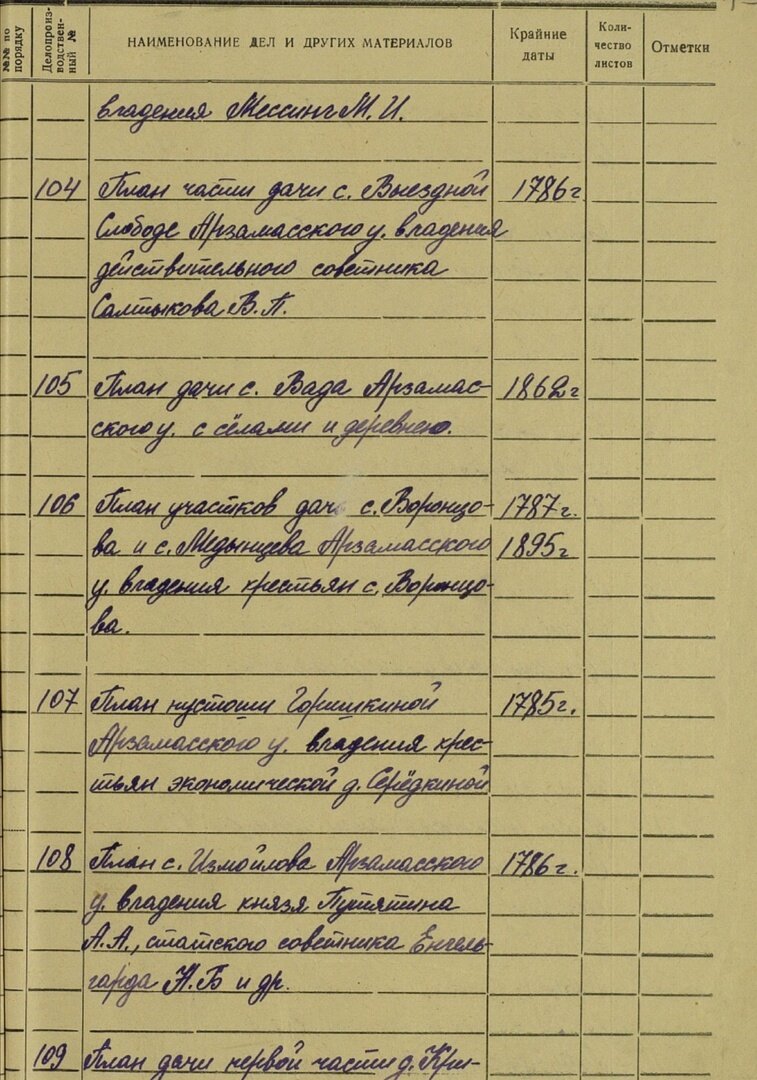 №№ по порядку
Делопроиз-
водствен-
ный №
НАИМЕНОВАНИЕ ДЕЛ И ДРУГИХ МАТЕРИАЛОВ
Крайние
даты
Коли-
чество
листов
Отметки
владения Мессинг М. И.
104 План части дачи с. Выездной 1786 г
Слободе Арзамасского у. владения
действительного советника
Салтыкова В. П.
105 План дачи с. Вада Арзамас- 1862 г
ского у. с сёлами и деревнею.
106 План участков дачи с. Воронцо- 1787 г.
ва и с. Медынцева Арзамасского 1895 г
у. владения крестьян с. Воронцо-
ва.
107 План пустоши Горишкиной 1785 г.
Арзамасского у. владения крес-
тьян экономической д. Серёдкиной
108 План с. Измойлова Арзамасского 1786 г.
у. владения князя Путятина
А. А., статского советника Енгель-
гарда Н. Б и др.
109 План дачи первой части д. Кри-